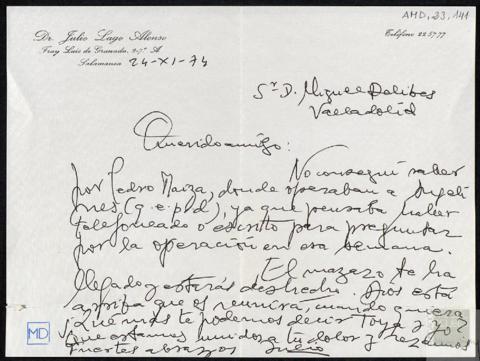 AMD, 23, 141
Dr. Julio Lago Alonso
Fray Luis de Granada, 2-7º A
Salamanca
24-XI-74
Teléfono 22 57 77
Sr. D. Miguel Delibes
Valladolid
Querido amigo:
No conseguí saber
por Pedro donde operaban a
(q.e.p.d), ya que pensaba haber
telefoneado o escrito para preguntar
por la operación en esa semana.
El mazazo te ha
llegado y estarás deshecho. Dios está
arriba que os reunirá, cuando quiera
¿Que más te podemos decir Toya y yo?
Que estamos unidos a tu dolor y rezamos
Fuertes abrazos Julio
MD